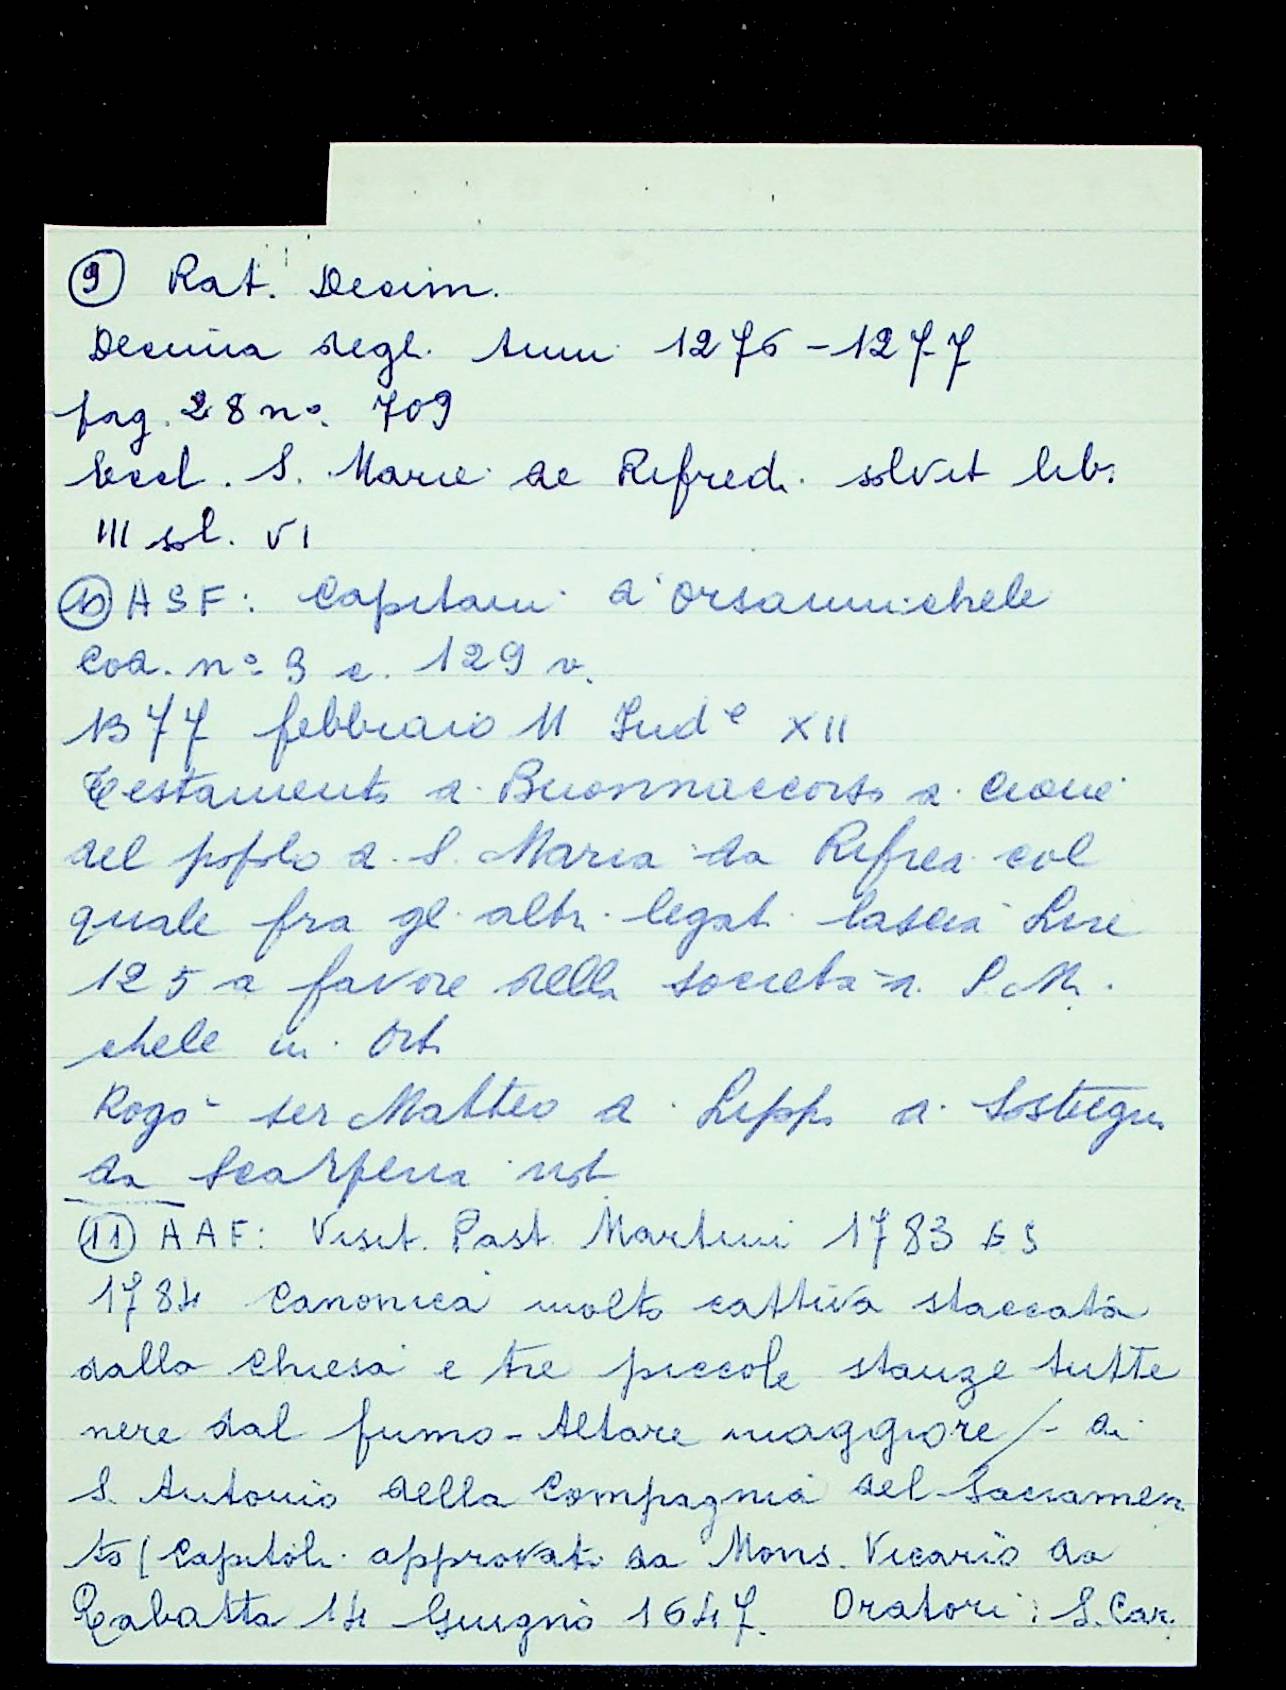 9 Rat. Decim.
Decima degli Anni 1276-1277
pag. 28 nº. 709
Eccl. S. Marie de Rifredi solvit lib.
III sol. VI
10 ASF: Capitani d'Orsanmichele
Cod. nº 3 c. 129 v.
1377 febbraio 11 Indᵉ XII
Testamento di Buonnaccorso di Cione
del popolo di S. Maria da Rifredi col
quale fra gli altri legati lascia Lire
125 a favore della società di S. Mi
chele in Orti
Rogò ser Matteo di Lippo di Sostegni
da Scarperia not
11 AAF: Visit. Past. Martini 1783
1784 Canonica molto cattiva staccata
dalla chiesa e tre piccole stanze tutte
nere dal fumo - Altare maggiore /- di
S. Antonio della Compagnia del Sacramen
to (Capitoli approvati da Mons. Vicario da
Rabatta 14 Giugno 1647. Oratori: S. Car.